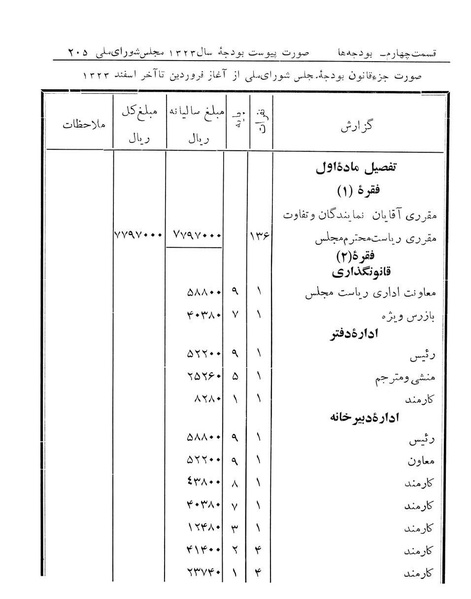 قسمت چهارم_ بودجه‌ها صورت پیوست بودجهٔ سال ۱۳۲۳ مجلس شورای‌ملی ۲۰۵
صورت جزء قانون بودجهٔ مجلس شورای‌ملی از آغاز فروردین تا آخر اسفند ۱۳۲۳
گزارش نفرات پایه مبلغ سالیانه ریال مبلغ کل ریال ملاحظات
تفصیل مادهٔ اول
فقرهٔ (۱)
مقرری آقایان نمایندگان و تفاوت
مقرری ریاست محترم مجلس ۱۳۶ ۷۷۹۷۰۰۰ ۷۷۹۷۰۰۰
فقرهٔ (۲)
قانونگذاری
معاونت اداری ریاست مجلس ۱ ۹ ۵۸۸۰۰
بازرس ویژه ۱ ۷ ۴۰۳۸۰
ادارهٔ دفتر
رئیس ۱ ۹ ۵۲۲۰۰
منشی و مترجم ۱ ۵ ۲۵۲۶۰
کارمند ۱ ۱ ۸۲۸۰
ادارهٔ دبیرخانه
رئیس ۱ ۹ ۵۸۸۰۰
معاون ۱ ۹ ۵۲۲۰۰
کارمند ۱ ۸ ۴۳۸۰۰
کارمند ۱ ۷ ۴۰۳۸۰
کارمند ۱ ۳ ۱۲۴۸۰
کارمند ۴ ۲ ۴۱۴۰۰
کارمند ۴ ۱ ۲۳۷۴۰